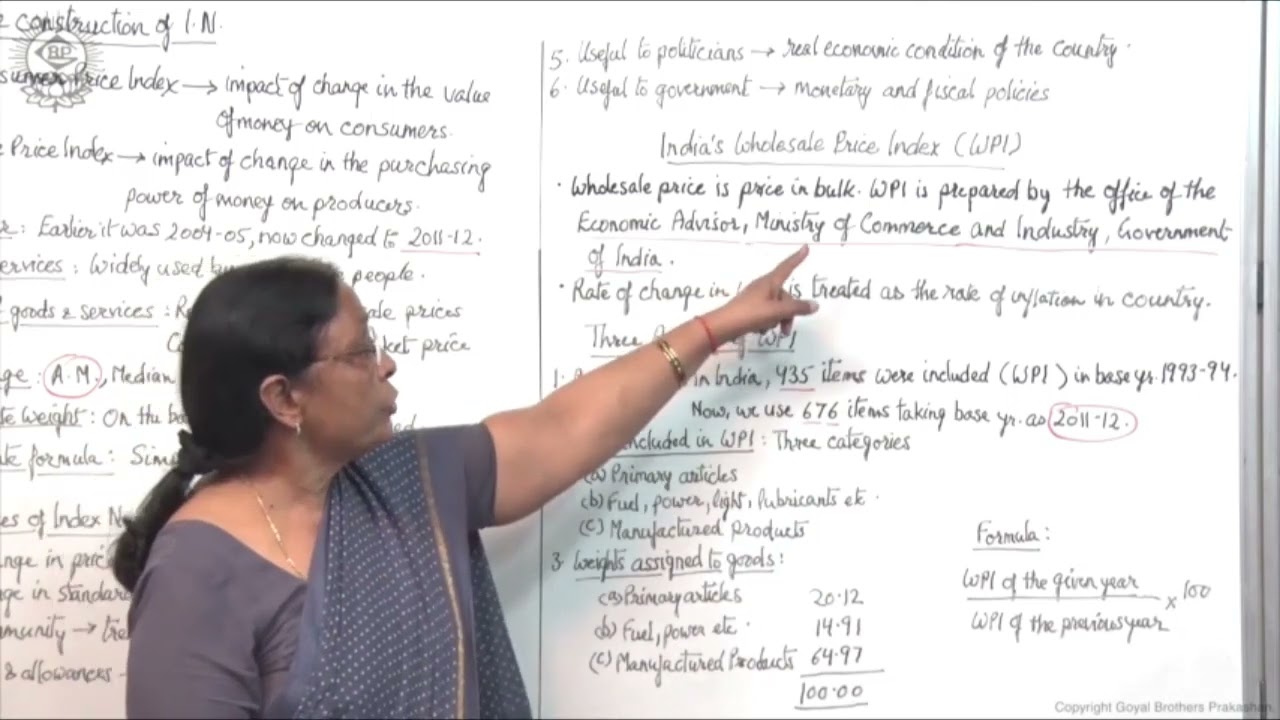 construction of I.N.
BP
Price Index → impact of change in the value
of money on consumers.
Price Index → impact of change in the purchasing
power of money on producers.
: Earlier it was 2004-05, now changed to 2011-12.
: Widely used people.
goods & services : prices
price
: A.M., Median
Weight : On the
formula :
of Index
in
in standard
→
& allowances →
5. Useful to politicians → real economic condition of the country.
6. Useful to government → monetary and fiscal policies
India's Wholesale Price Index (WPI)
• Wholesale price is price in bulk. WPI is prepared by the office of the
Economic Advisor, Ministry of Commerce and Industry, Government
of India.
• Rate of change in is treated as the rate of inflation in country.
Three of WPI
1. in India, 435 items were included (WPI) in base yr. 1993-94.
Now, we use 676 items taking base yr. as 2011-12.
included in WPI : Three categories
(a) Primary articles
(b) Fuel, power, light, lubricants etc.
(c) Manufactured Products
3. Weights assigned to goods :
(a) Primary articles 20.12
(b) Fuel, power etc. 14.91
(c) Manufactured Products 64.97
100.00
Formula :
WPI of the given year
x 100
WPI of the previous year
Copyright Goyal Brothers Prakashan